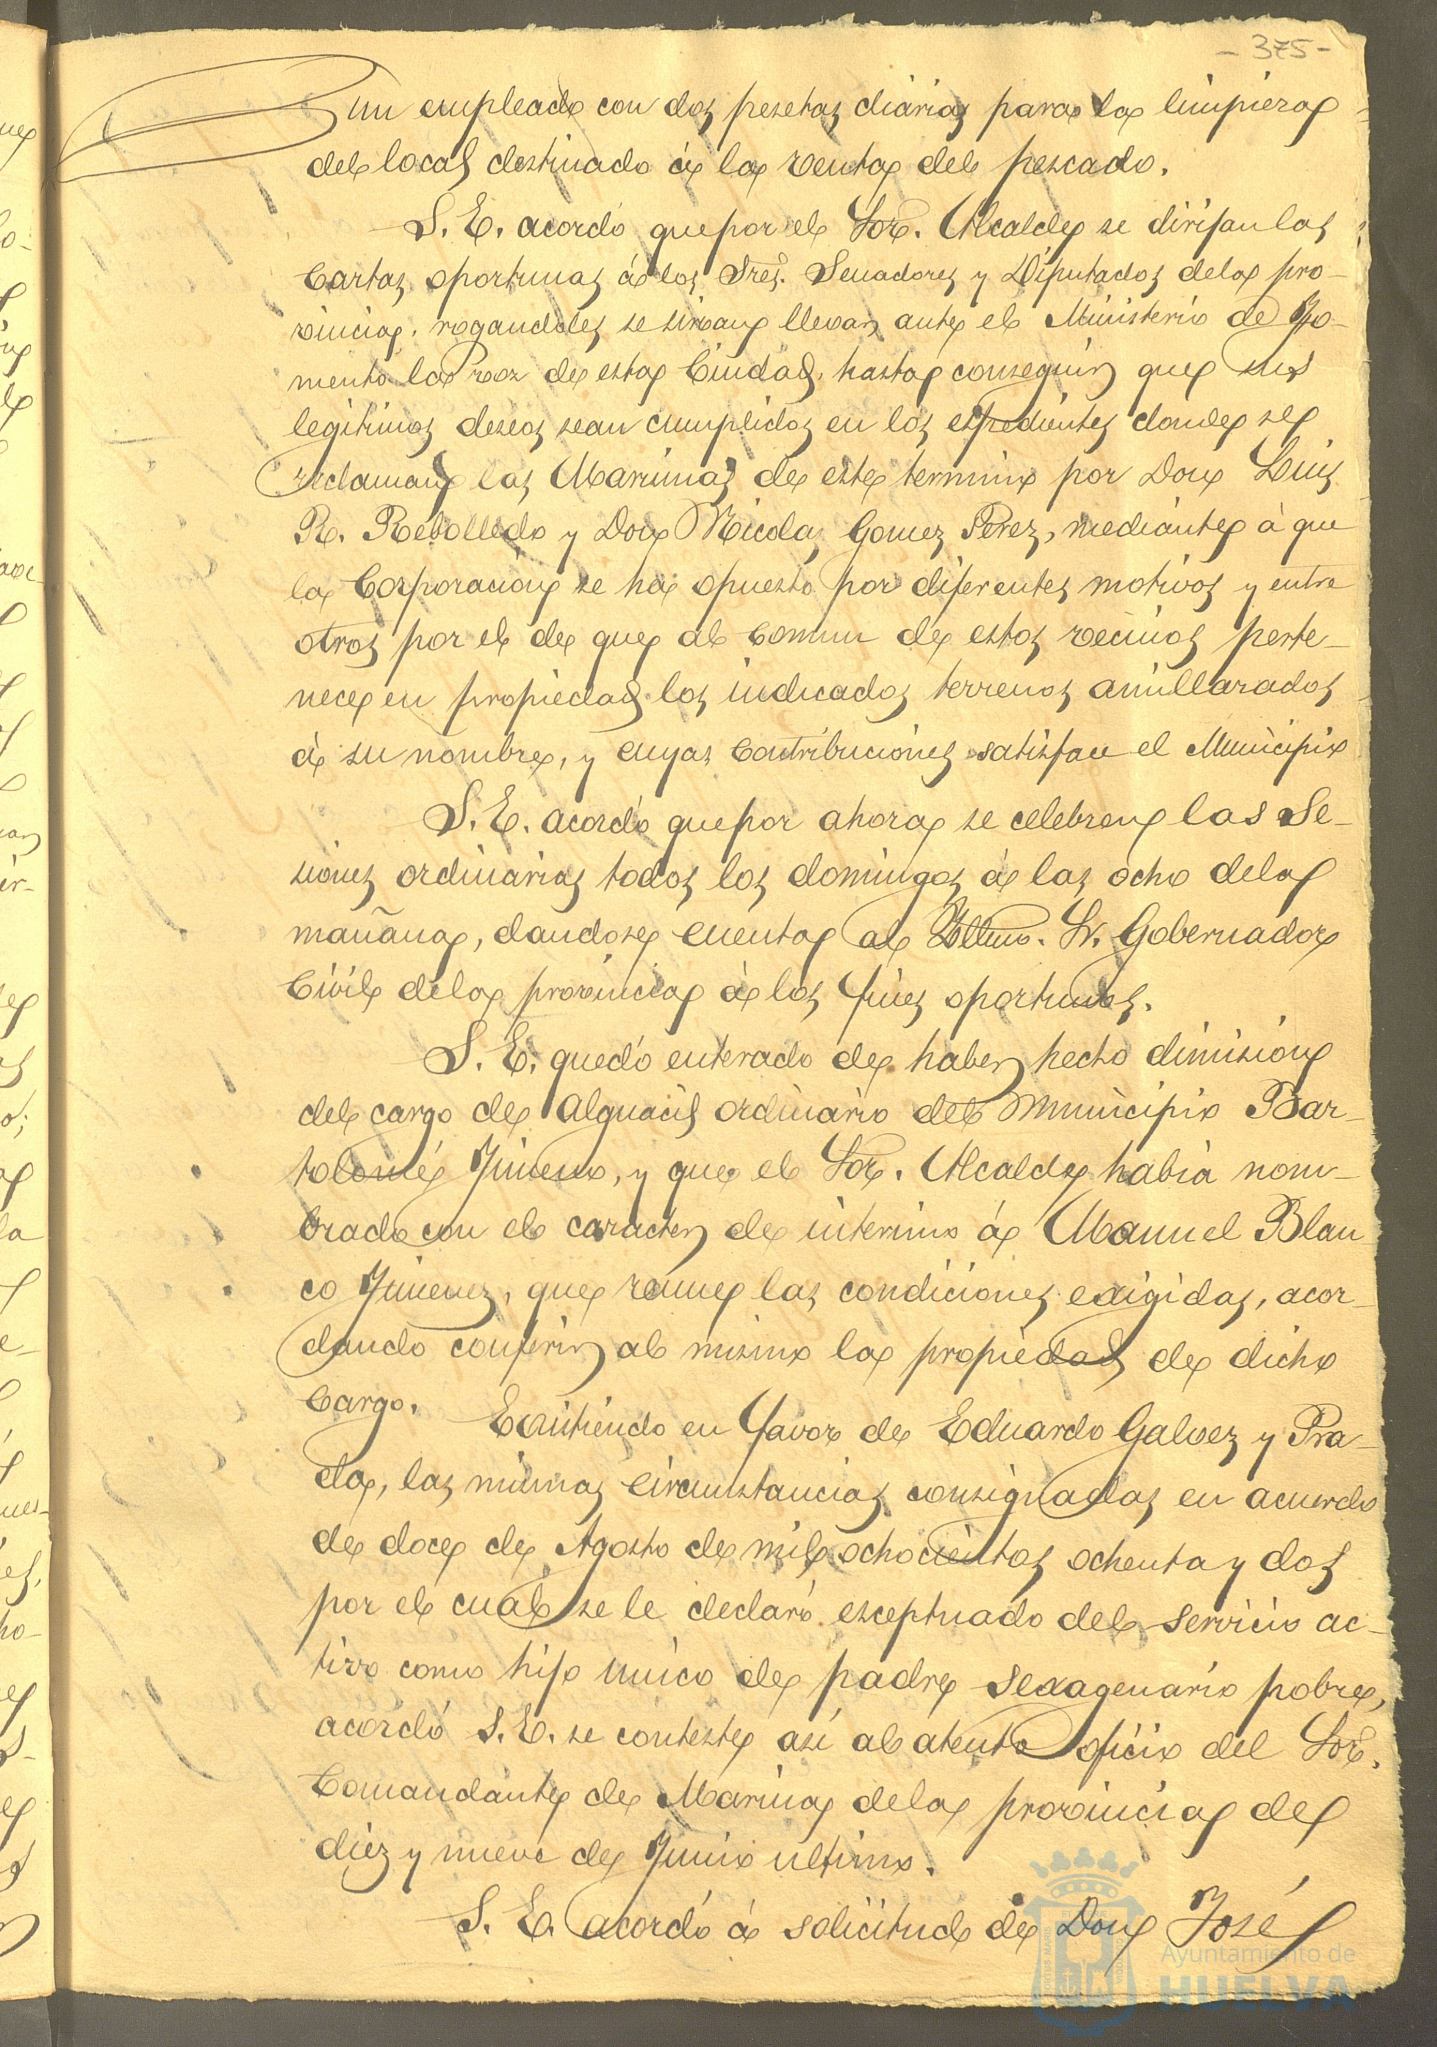 - 375 -
un empleado con dos pesetas diarias para la limpieza
del local destinado á la venta del pescado.
S. E. acordó que por el Sor. Alcalde se dirijan las
cartas oportunas á los Sres. Senadores y Diputados de la pro-
vincia, rogandoles se sirvan llevar ante el Ministerio de Fo-
mento la voz de esta Ciudad, hasta conseguir que sus
legitimos deseos sean cumplidos en los espedientes donde se
reclaman las Marismas de este termino por Don Luis
R. Rebolledo y Don Nicolas Gomez Perez, mediante á que
la Corporacion se ha opuesto por diferentes motivos y entre
otros por el de que al comun de estos vecinos perte-
nece en propiedad los indicados terrenos amillarados
á su nombre, y cuyas contribuciones satisface el Municipio
S. E. acordó que por ahora se celebren las Se-
siones ordinarias todos los domingos á las ocho de la
mañana, dandose cuenta al Iltmo. Sr. Gobernador
Civil de la provincia á los fines oportunos.
S. E. quedó enterado de haber hecho dimision
del cargo de alguacil ordinario del Municipio Bar-
tolomé Jimeno, y que el Sor. Alcalde habia nom-
brado con el caracter de interino á Manuel Blan-
co Jimenez, que reune las condiciones exigidas, acor-
dando conferir al mismo la propiedad de dicho
cargo.
Existiendo en favor de Eduardo Galvez y Pra-
da, las mismas circunstancias consignadas en acuerdo
de doce de Agosto de mil ochocientos ochenta y dos
por el cual se le declaró esceptuado del servicio ac-
tivo como hijo unico de padre sexagenario pobre,
acordó S. E. se conteste asi al atento oficio del Sor.
Comandante de Marina de la provincia de
diez y nueve de Junio ultimo.
S. E. acordó á solicitud de Don José
Ayuntamiento de
HUELVA